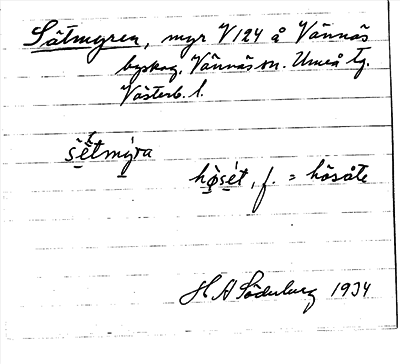 Såtmyren, myr V124 å Vännäs
byskog, Vännäs sn. Umeå tg.
Västerb. l.
sètmýra
hø̀sét, f. = hösåte
H A Söderberg 1934